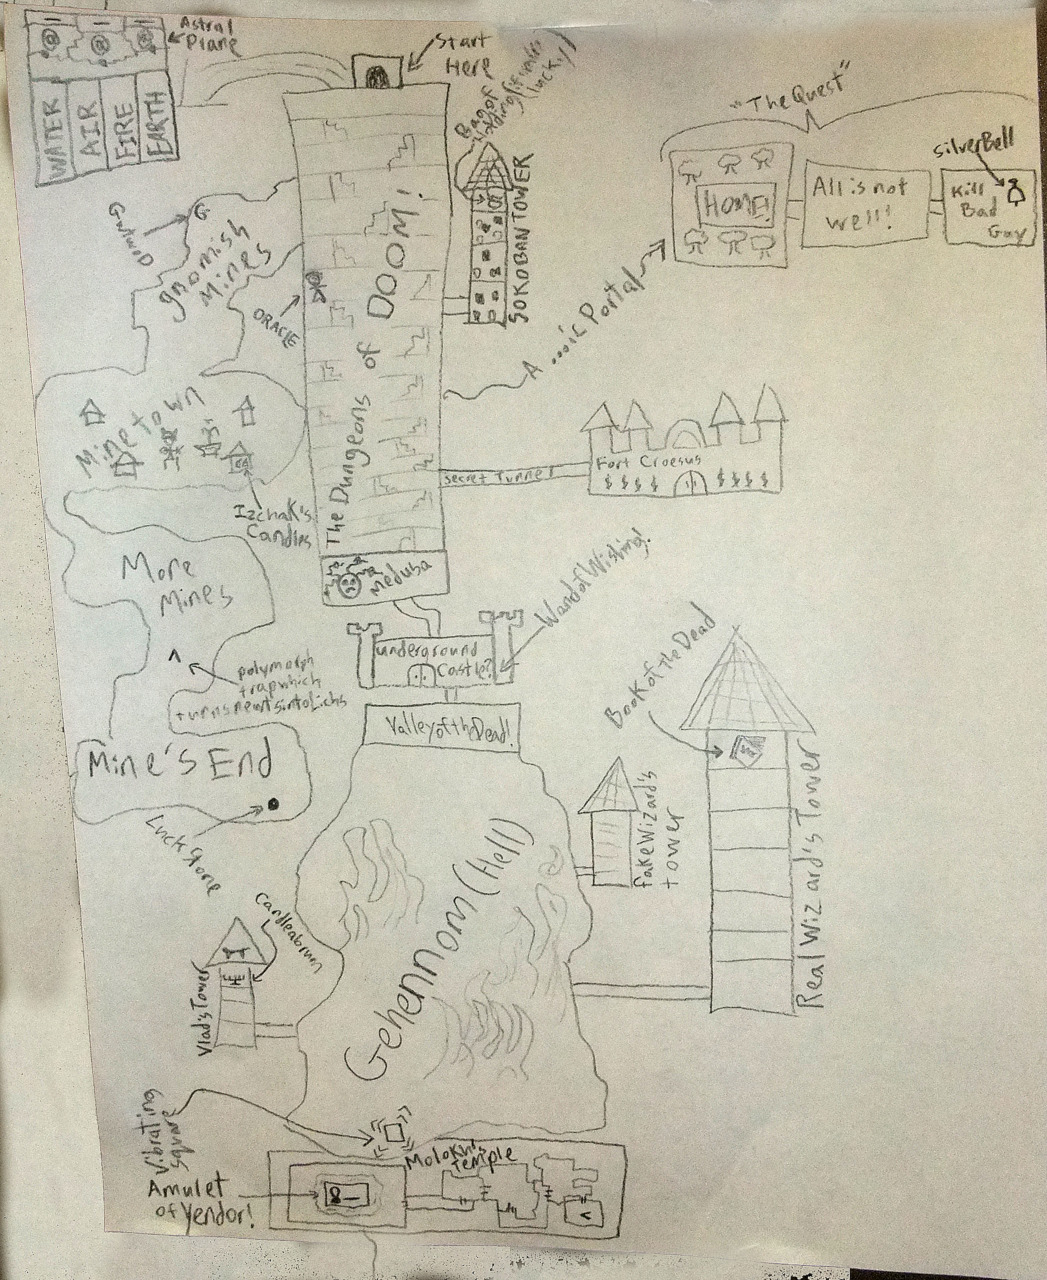 Astral
Plane
WATER
AIR
FIRE
EARTH
Start
Here
Bag of
Holding (if you're
lucky!)
SOKOBAN TOWER
"The Quest"
HOME!
All is not
well!
Silver Bell
Kill
Bad
Guy
G
gnomish
Mines
ORACLE
The Dungeons of DOOM!
A ...ic Portal
Minetown
Izchak's
Candles
Secret Tunnel
Fort Croesus
$ $ $ $ $ $ $ $
More
Mines
^
polymorph
trap which
turns newts into Lichs
Medusa
underground
Castle?
Wand of Wishing!
Valley of the Dead!
Mine's End
Luck Stone
Book of the Dead
fake Wizard's
tower
Real Wizard's Tower
Gehennom (Hell)
Candleabrum
Vlad's Tower
Vibrating
Square
Molokh's
Temple
Amulet
of Yendor!
<